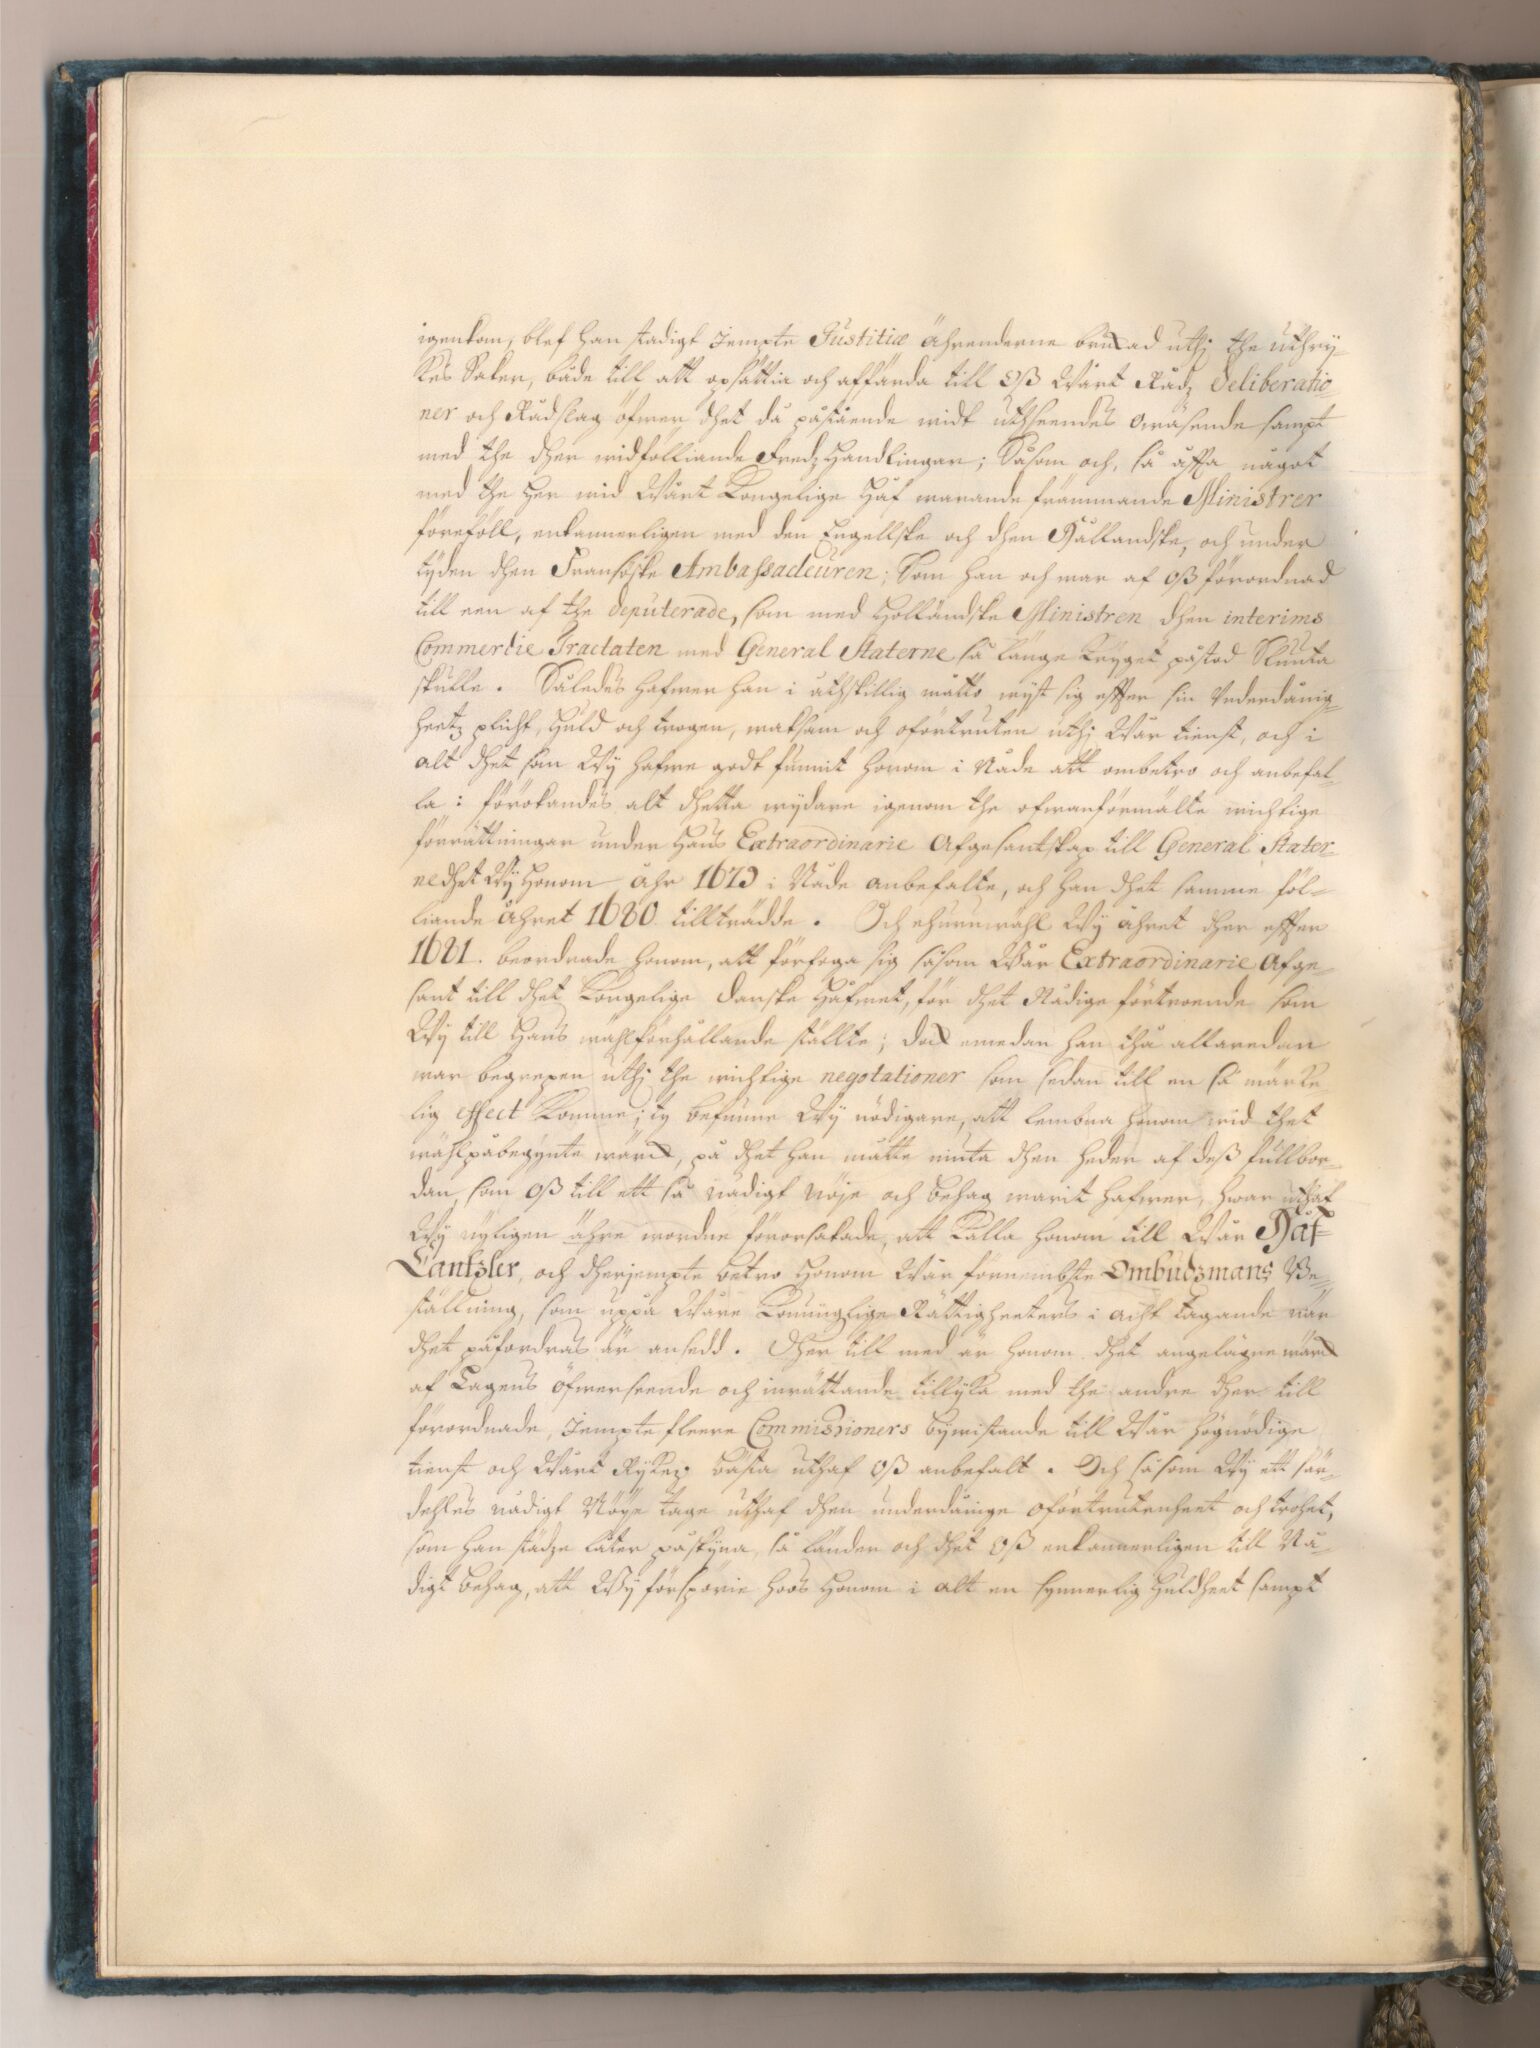 igenkom, blef han stadigt Jempte Justitiæ ährenderne brukad uthj the uthry-
kes Saker, både till att opsättia och affärda till Oß Wårt Rådz deliberatio-
ner och Rådslag öfwer dhet då påståände widt uthseendes owäsende sampt
med the dher widfölliande Fredz Handlingar; Såsom och, så offta något
med the her wid Wårt Kongelige Håf warande främmande Ministrer
föreföll, enkannerligen med den Engellske och dhen Hållandske, och under
tyden dhen Fransöske Ambassadeuren; Som han och war af Oß förordnad
till een af the deputerade, som med Holländske Ministren dhen interims
Commercie Tractaten med General Staterne så länge Kryget påstod Sluuta
skulle. Således hafwer han i åthskillig måtto wyst sig effter sin Underdånig-
heetz plicht, Huld och trogen, waksam och oförtruten uthj Wår tienst, och i
alt dhet som Wy hafwe godt funnit honom i Nåde att ombetro och anbefal-
la: förökandes alt dhetta wydare igenom the ofwanförmälte wichtige
förrättningar under Hans Extraordinarie Afgesantskap till General Stater-
ne dhet Wy Honom åhr 1679 i Nåde anbefalte, och han dhet samme föl-
liande åhret 1680 tillträdde. Och ehuruwähl Wy åhret dher effter
1681. beordrade honom, att förfoga sig såsom Wår Extraordinarie Afge-
sant till dhet Kongelige danske Håfwet, för dhet Nådige förtroende som
Wy till Hans wählförhållande ställte; doch emedan han thå allaredan
war begrepen uthj the wichtige negotationer som sedan till en så märke-
lig effect komme; ty befunne Wy nödigare, att lembna honom wid thet
wählpåbegynte wärck, på dhet han måtte niuta dhen heder af deß fullbor-
dan, som Oß till ett så nådigt nöje och behag warit hafwer, hwar uthaf
Wy nyligen ähre wordne förorsakade, att kalla honom till Wår Håf-
Cantzler, och dherjempte betro Honom Wår förnembste Ombudzmans Be-
ställning, som uppå Wåre Konunglige Rättigheeters i acht tagande när
dhet påfordras är ansedd. Dher till med är honom dhet angelägne wärck
af Lagens öfwerseende och inrättande tillyka med the andre dher till
förordnade, Jempte fleere Commissioners bywistande till Wår högnödige
tienst och Wårt Rykez bästa uthaf Oß anbefalt. Och såsom Wy ett sär-
dehles nådigt Nöye tage uthaf dhen underdånige oförtrutenheet och trohet,
som han städze låter påskyna, så länder och dhet Oß enkannerligen till Nå-
digt behag, att Wy förspörie hoos Honom i alt en synnerlig Huldheet sampt